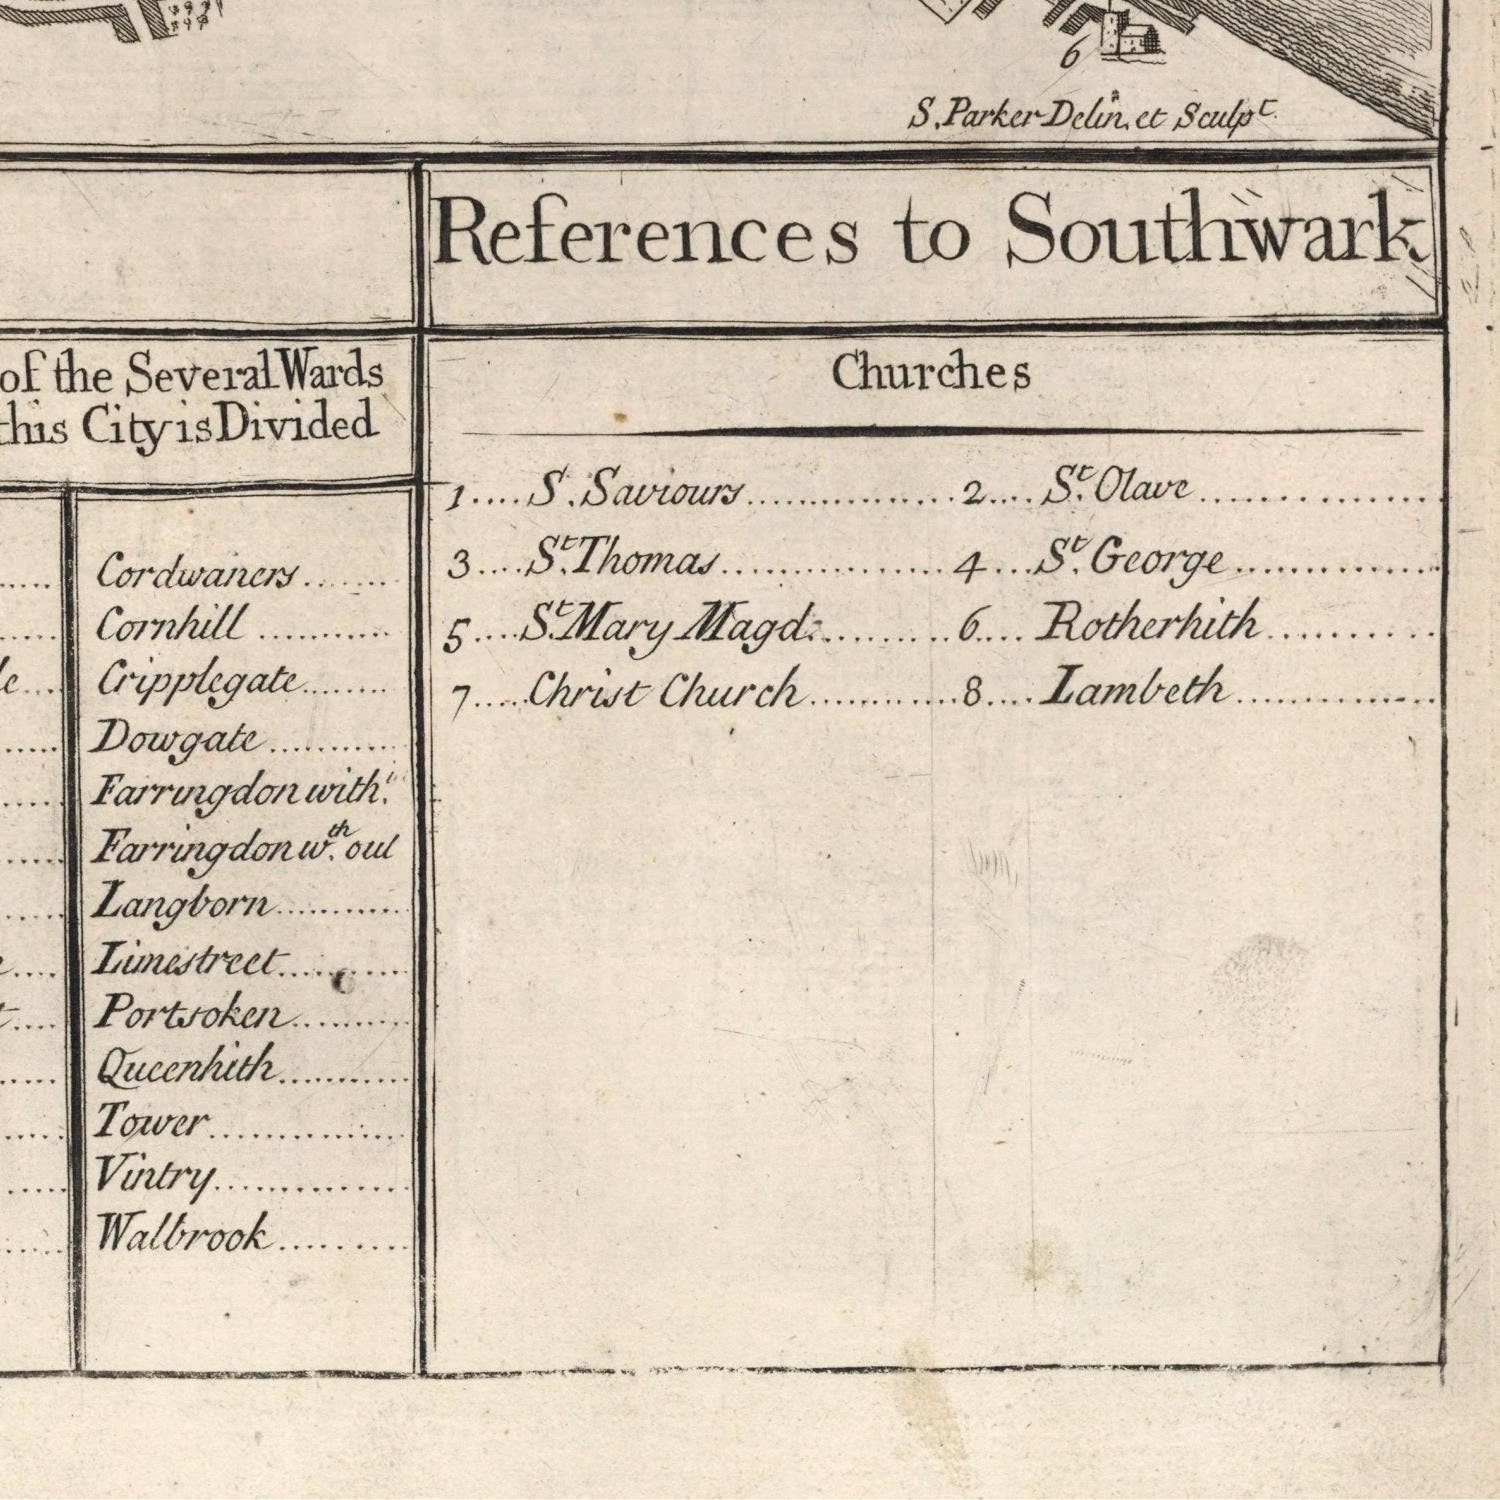 6
S. Parker Delin. et Sculpt.
References to Southwark
of the Several Wards
this City is Divided
Cordwaners
Cornhill
Cripplegate
Dowgate
Farringdon with.
Farringdon wth. out
Langborn
Limestreet
Portsoken
Queenhith
Tower
Vintry
Walbrook
Churches
1.....S. Saviours..............2....St. Olave
3....St. Thomas..............4...St. George
5....St. Mary Magd:.........6....Rotherhith
7.....Christ Church............8....Lambeth